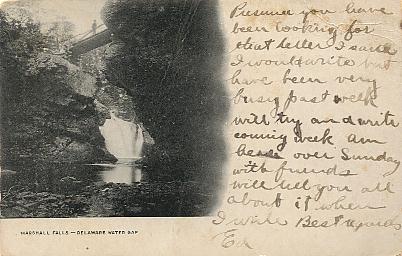 Presume you have
been looking for
that letter I said
I would write but
have been very
busy past week
will try and write
coming week am
here over Sunday
with friends
will tell you all
about it when
I write Best regards
Ed
MARSHALL FALLS — DELAWARE WATER GAP